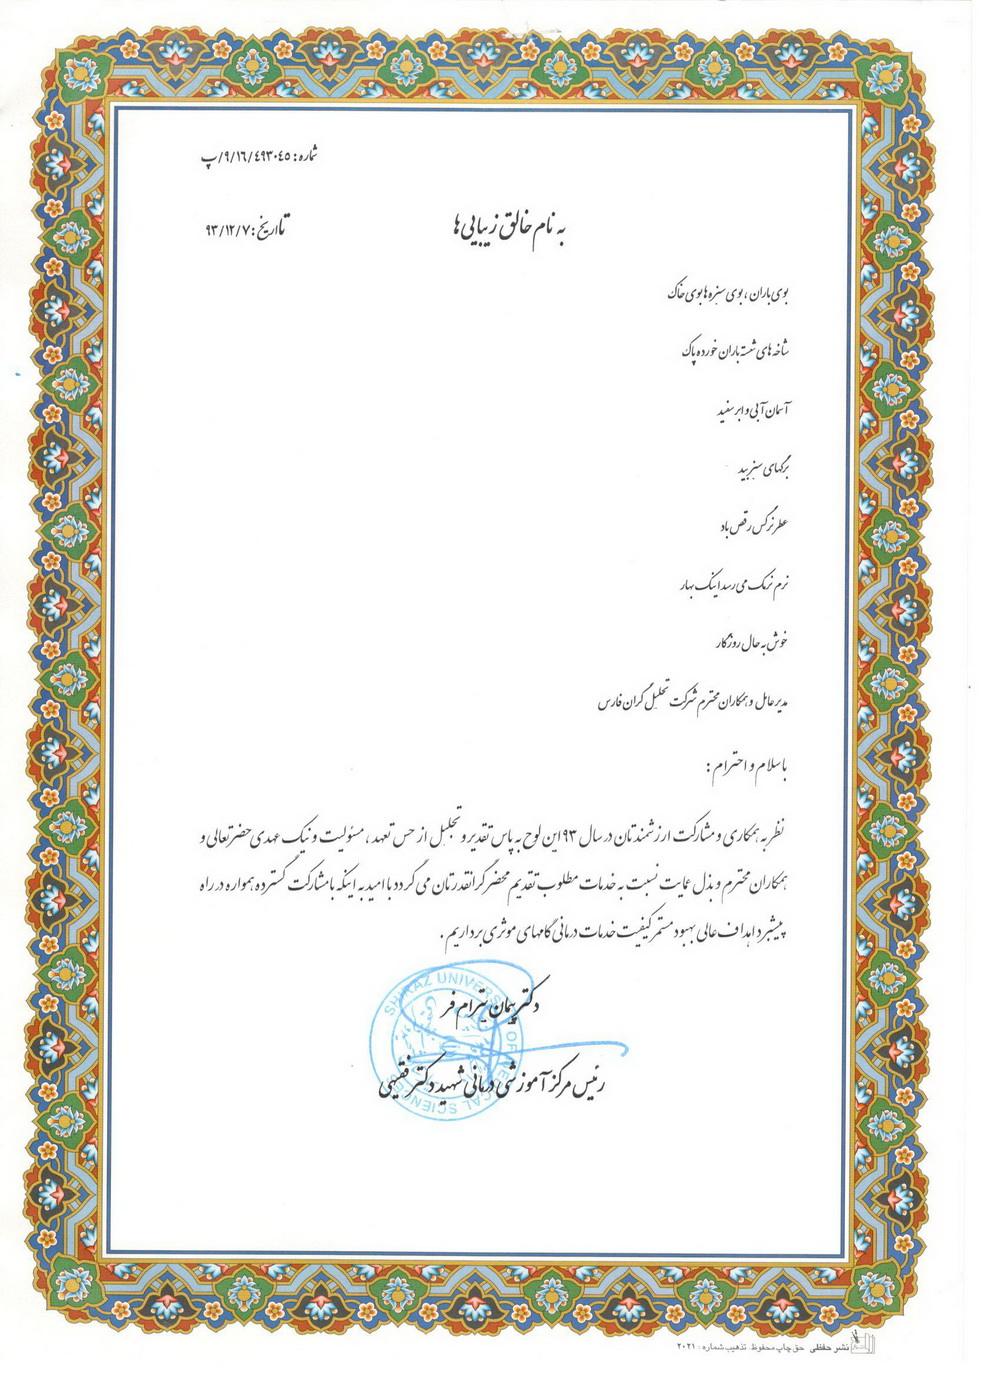 شماره: ۹/۱٦/٤۹۳۰٤٥/پ
به نام خالق زیبایی ها
تااریخ: ۹۳/۱۲/۷
بوی باران ، بوی سبزه ها بوی خاک
شاخه های شسته باران خورده پاک
آسمان آبی و ابر سفید
برگهای سبز بید
عطر نرگس رقص باد
نرم نرمک می رسد اینک بهار
خوش به حال روزگار
مدیر عامل و همکاران محترم شرکت تحلیل گران فارس
با سلام و احترام :
نظر به همکاری و مشارکت ارزشمندتان در سال ۹۳ این لوح به پاس تقدیر و تجلیل از حس تعهد ، مسئولیت و نیک عهدی حضرتعالی و
همکاران محترم و بذل عنایت نسبت به خدمات مطلوب تقدیم محضر گرانقدرتان می گردد با امید به اینکه با مشارکت گسترده همواره در راه
پیشبرد اهداف عالی بهبود مستمر کیفیت خدمات درمانی گامهای موثری برداریم .
دکتر پیمان پترام فر
رئیس مرکز آموزشی درمانی شهید دکتر فقیهی
SHIRAZ UNIVERSITY OF MEDICAL SCIENCES
نشر حفظی حق چاپ محفوظ تذهیب شماره : ۲۰۲۱